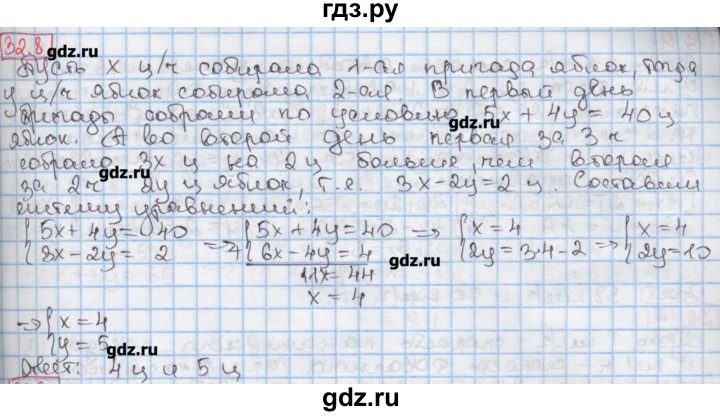 гдз.ру
32.8
gdz.ru
Пусть x ц/ч собирала 1-ая бригада яблок, тогда
y ц/ч яблок собирала 2-ая. В первый день
бригады собрали по условию 5x + 4y = 40 ц
яблок. А во второй день первая за 3 ч
собрала 3x ц на 2 ц больше, чем вторая
за 2ч 2y ц яблок, т.е. 3x-2y=2 ц. Составим
систему уравнений:
{5x+4y=40 {5x+4y=40 → {x=4 {x=4
{3x-2y=2 ⇒ + {6x-4y=4 {2y=3·4-2 ⇒ {2y=10
11x=44
x=4
gdz.ru
→ {x=4
{y=5
gdz.ru
Ответ: 4 ц и 5 ц
gdz.ru
gdz.ru